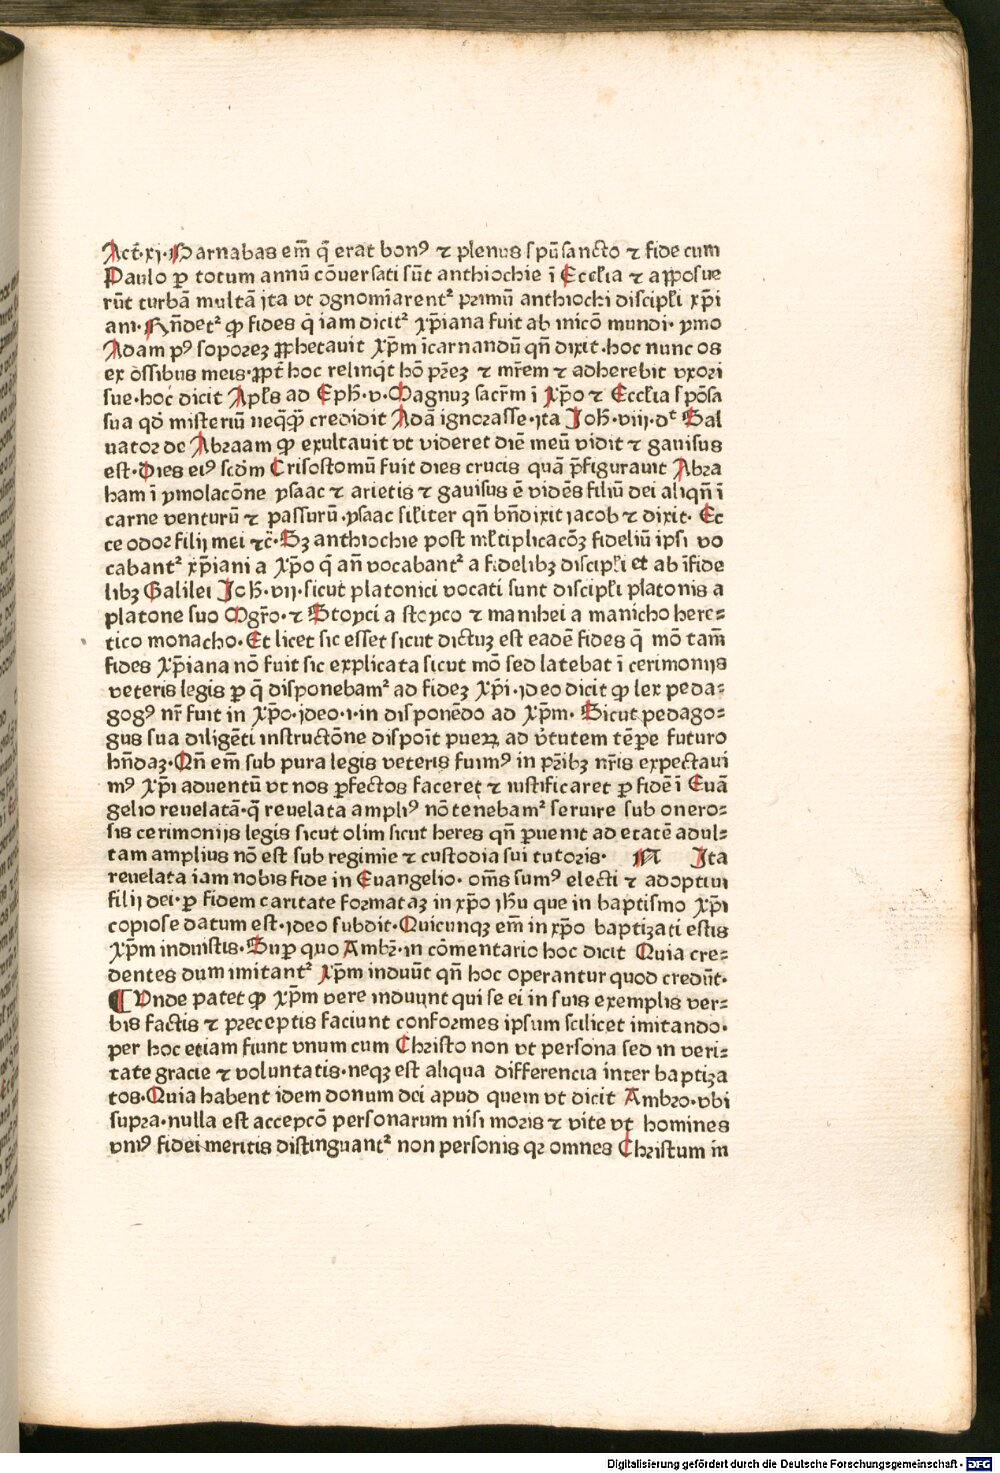 Act̄·xj·Barnabas em̄ q̄ erat bonꝰ ⁊ plenus spūsancto ⁊ fide cum
Paulo ꝑ totum annū cōversati sūt anthiochie ī Eccłia ⁊ apposue
rūt turbā multā jta vt ꝯgnomīarent᷑ primū anthiochi discipłi xp̄i
ani·Rn̄det᷑ ꝙ fides q̄ iam dicit᷑ xp̄iana fuit ab inicō mundi· pmo
Adam pꝰ soporeꝫ ꝓphetauit Xp̄m īcarnandū qn̄ dixit·hoc nunc os
ex ossibus meis·ꝓpt̄ hoc relinq̄t hō pr̄eꝫ ⁊ mr̄em ⁊ adherebit vxori
sue·hoc dicit Apłs ad Eph̄·v·Magnuꝫ sacr̄m ī Xp̄o ⁊ Eccłia spōsa
sua qd̄ misteriū neqꝗ̄ credidit Adā ignorasse·jta Joh̄·viij·dᵗ Sal
uator de Abraam ꝙ exultauit vt videret diē meū vidit ⁊ gauisus
est·Dies eiꝰ scdm̄ Crisostomū fuit dies crucis quā p̄figurauit Abra
ham ī ymolacōne ysaac ⁊ arietis ⁊ gauisus ē vidēs filiū dei aliqn̄ ī
carne venturū ⁊ passurū·ysaac siłiter qn̄ bn̄dixit jacob ⁊ dixit· Ec
ce odor filij mei ⁊c̄·Sꝫ anthiochie post młtiplicacōꝫ fideliū ipsi vo
cabant᷑ xp̄iani a Xp̄o q̄ an̄ vocabant᷑ a fidelibꝫ discipłi et ab īfide
libꝫ Galilei Joh̄·vij·sicut platonici vocati sunt discipłi platonis a
platone suo Mgr̄o·⁊ Stoyci a stoyco ⁊ manihei a manicho here⸗
tico monacho·Et licet sic esset sicut dictuꝫ est eadē fides q̄ mō tam̄
fides Xp̄iana nō fuit sic explicata sicut mō sed latebat ī cerimonijs
veteris legis ꝑ q̄ disponebam᷑ ad fideꝫ Xp̄i·jdeo dicit ꝙ lex peda⸗
gogꝰ nr̄ fuit in Xp̄o·jdeo·i·in disponēdo ad Xp̄m· Sicut pedago⸗
gus sua diligēti instructōne dispoīt pueꝝ ad v̄tutem tēpe futuro
hn̄daꝫ·Qn̄ em̄ sub pura legis veteris fuimꝰ in pr̄ibꝫ nr̄is expectaui
mꝰ Xp̄i aduentū vt nos ꝑfectos faceret ⁊ iustificaret ꝑ fidē ī Euā
gelio reuelatā·q̄ reuelata ampliꝰ nō tenebam᷑ seruire sub onero⸗
sis cerimonijs legis sicut olim sicut heres qn̄ ꝑuenit ad etatē adul⸗
tam amplius nō est sub regimie ⁊ custodia sui tutoris· Jta
reuelata iam nobis fide in Euangelio· om̄s sumꝰ electi ⁊ adoptiui
filij dei·ꝑ fidem caritate formataꝫ in xp̄o jh̄u que in baptismo Xp̄i
copiose datum est·jdeo subdit·Quicunqꝫ em̄ in xp̄o baptizati estis
Xp̄m induistis·Suꝑ quo Ambr̄·in cōmentario hoc dicit Quia cre⸗
dentes dum imitant᷑ Xp̄m induūt qn̄ hoc operantur quod credūt·
¶ Vnde patet ꝙ Xp̄m vere induunt qui se ei in suis exemplis ver⸗
bis factis ⁊ preceptis faciunt conformes ipsum scilicet imitando·
per hoc etiam fiunt vnum cum Christo non vt persona sed in veri⸗
tate gracie ⁊ voluntatis·neqꝫ est aliqua differencia inter baptiza
tos·Quia habent idem donum dei apud quem vt dicit Ambro·vbi
supra·nulla est accepcō personarum nisi moris ⁊ vite vt homines
vniꝰ fidei meritis distinguant᷑ non personis qr omnes Christum in
Digitalisierung gefördert durch die Deutsche Forschungsgemeinschaft - DFG